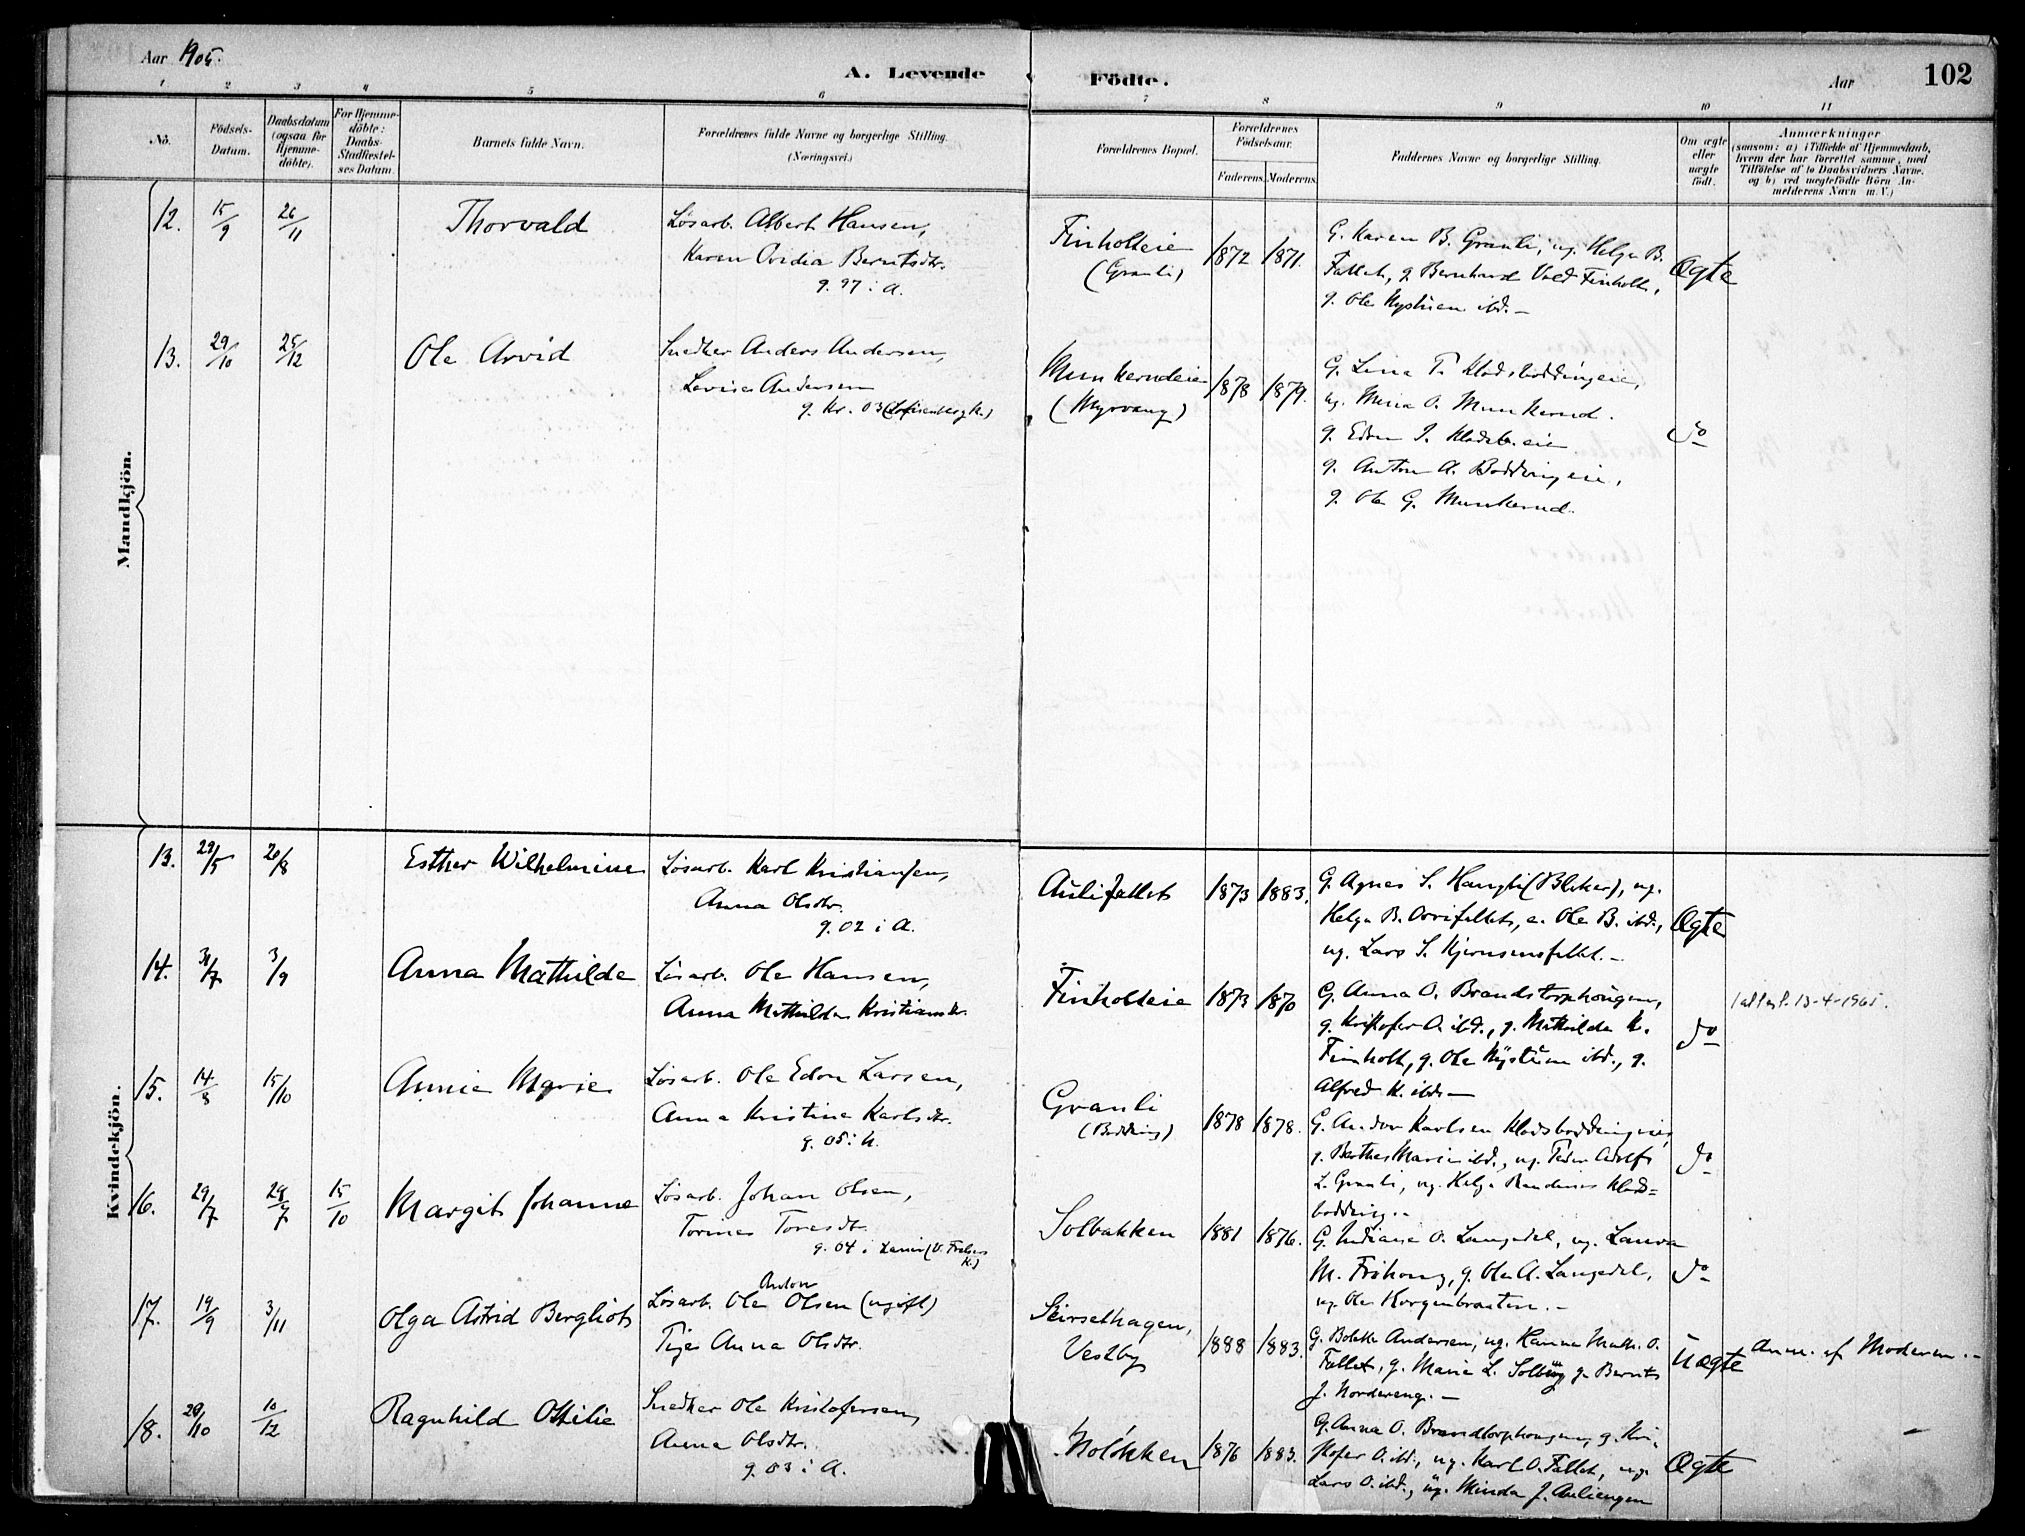 Aar 1905.
A. Levende
Födte.
Aar
102
1 2 3 4 5 6 7 8 9 10 11
No.
Födsels-
Datum.
Daabsdatum
(ogsaa for
Hjemme-
döbte).
For Hjemme-
döbte:
Daabs-
Stadfæstel-
ses Datum.
Barnets fulde Navn.
Forældrenes fulde Navne og borgerlige Stilling.
(Næringsvei.)
Forældrenes Bopæl.
Forældrenes
Födselsaar.
Faderens.
Moderens.
Faddernes Navne og borgerlige Stilling.
Om ægte
eller
uægte
födt.
Anmærkninger
(saasom: a) i Tilfælde af Hjemmedaab,
hvem der har forrettet samme, med
Tilföielse af to Daabsvidners Navne,
og b) ved uægtefödte Börn An-
melderens Navn m. V.)
Mandkjön.
12. 15/9 26/11 Thorvald
Løsarb. Albert Hansen,
Karen Ovidia Berntsdtr.
g. 97 i A.
Finholteie
(Granli)
1872 1871.
G. Karen B. Granli, ug. Helga B.
Fallet, g. Bernhard Finholt,
g. Ole Nystuen ibd. –
Ægte
13. 29/10 25/12 Ole Arvid
Snedker Anders Andersen,
Lovise Andersen
g. Kr. 03
Munkerudeie
(Myrvang)
1878 1879.
G. Lina T. Klodsboddingeie,
ug. O. Munkerud.
g. Edvin J.
g. Anton A. Boddingeie,
g. Ole G. Munkerud.
do
Kvindekjön.
13. 29/5 20/8 Esther Wilhelmine
Løsarb. Karl Kristiansen,
Anna Olsdtr.
g. 02 i A.
Aulifallet
1873 1883.
G. Agnes S. Haugli (Bleker), ug.
Helga B. Orvifallet, e. Ole B. ibd.,
ug. Lars S. –
Ægte
14. 3/9 Anna Mathilde
Løsarb. Ole Hansen,
Anna Mathilde Kristiansdtr.
Finholteie
1873 1870
G. Anna O. Brandstorphougen,
g. Kristofer O. ibd., g. Mathilde K.
Finholt, g. Ole Nystuen ibd., g.
Alfred K. ibd. –
do
13-4-1965.
15. 14/8 15/10 Annie Marie
Løsarb. Ole Edvin Larsen,
Anna Kristine Karlsdtr.
g. 05 i N.
Granli
(Bodding)
1878 1878.
G. Andor Karlsen Klodsboddingeie,
g. Berthe Marie ibd., ug. Peder Adolf
L. Granli, ug. Helga Klods=
bodding. –
do
16. 29/7 28/7 15/10 Margit Johanne
Løsarb. Johan Olsen,
Torine Toresdtr.
g. 04 i
Solbakken
1881 1876.
G. Indiane O. Langedal, ug. Laura
M. Frihoug, g. Ole A. Langedal,
ug. Ole Korgenbraaten. –
do
17. 19/9 3/11 Olga Astrid Bergliot
Anton
Løsarb. Ole Olsen (ugift)
Pige Anna Olsdtr.
Seirsethagen,
Vestby
1888 1883.
G. Andersen, ug. Hanna Math. O.
Fallet, g. Marie L. Solberg, g. Bernt
J. Nordereng. –
Uægte
Anm. af Moderen. –
18. 29/10 10/12 Ragnhild Ottilie
Snedker Ole Kristofersen,
Anna Olsdtr.
g. 03 i A.
1876 1883.
G. Anna O. Brandtorphougen, g. Kri-
stofer O. ibd., ug. Karl O. Fallet, ug.
Lars O. ibd., ug. Minda J. Auliengen
Ægte